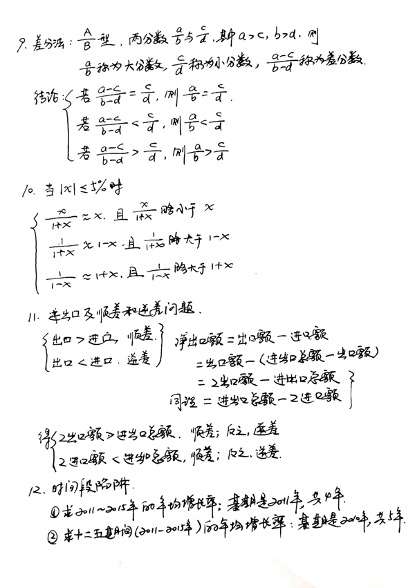 9. 差分法: A/B 型, 两分数 a/b 与 c/d, 其中 a>c, b>d. 则
a/b 称为大分数, c/d 称为小分数, (a-c)/(b-d) 称为差分数.
结论: 若 (a-c)/(b-d) = c/d, 则 a/b = c/d.
若 (a-c)/(b-d) < c/d, 则 a/b < c/d
若 (a-c)/(b-d) > c/d, 则 a/b > c/d
10. 当 |x| ≤ 5% 时
x/(1+x) ≈ x, 且 x/(1+x) 略小于 x
1/(1+x) ≈ 1-x, 且 1/(1+x) 略大于 1-x
1/(1-x) ≈ 1+x, 且 1/(1-x) 略大于 1+x
11. 进出口及顺差和逆差问题.
出口 > 进口, 顺差
出口 < 进口, 逆差
净出口额 = 出口额 - 进口额
= 出口额 - (进出口总额 - 出口额)
= 2出口额 - 进出口总额
同理 = 进出口总额 - 2进口额
2出口额 > 进出口总额, 顺差; 反之, 逆差
2进口额 < 进出口总额, 顺差; 反之, 逆差.
12. 时间段陷阱.
① 求2011~2015年的年均增长率: 基期是2011年, 共4年.
② 求十二五期间(2011-2015年)的年均增长率: 基期是2010年, 共5年.